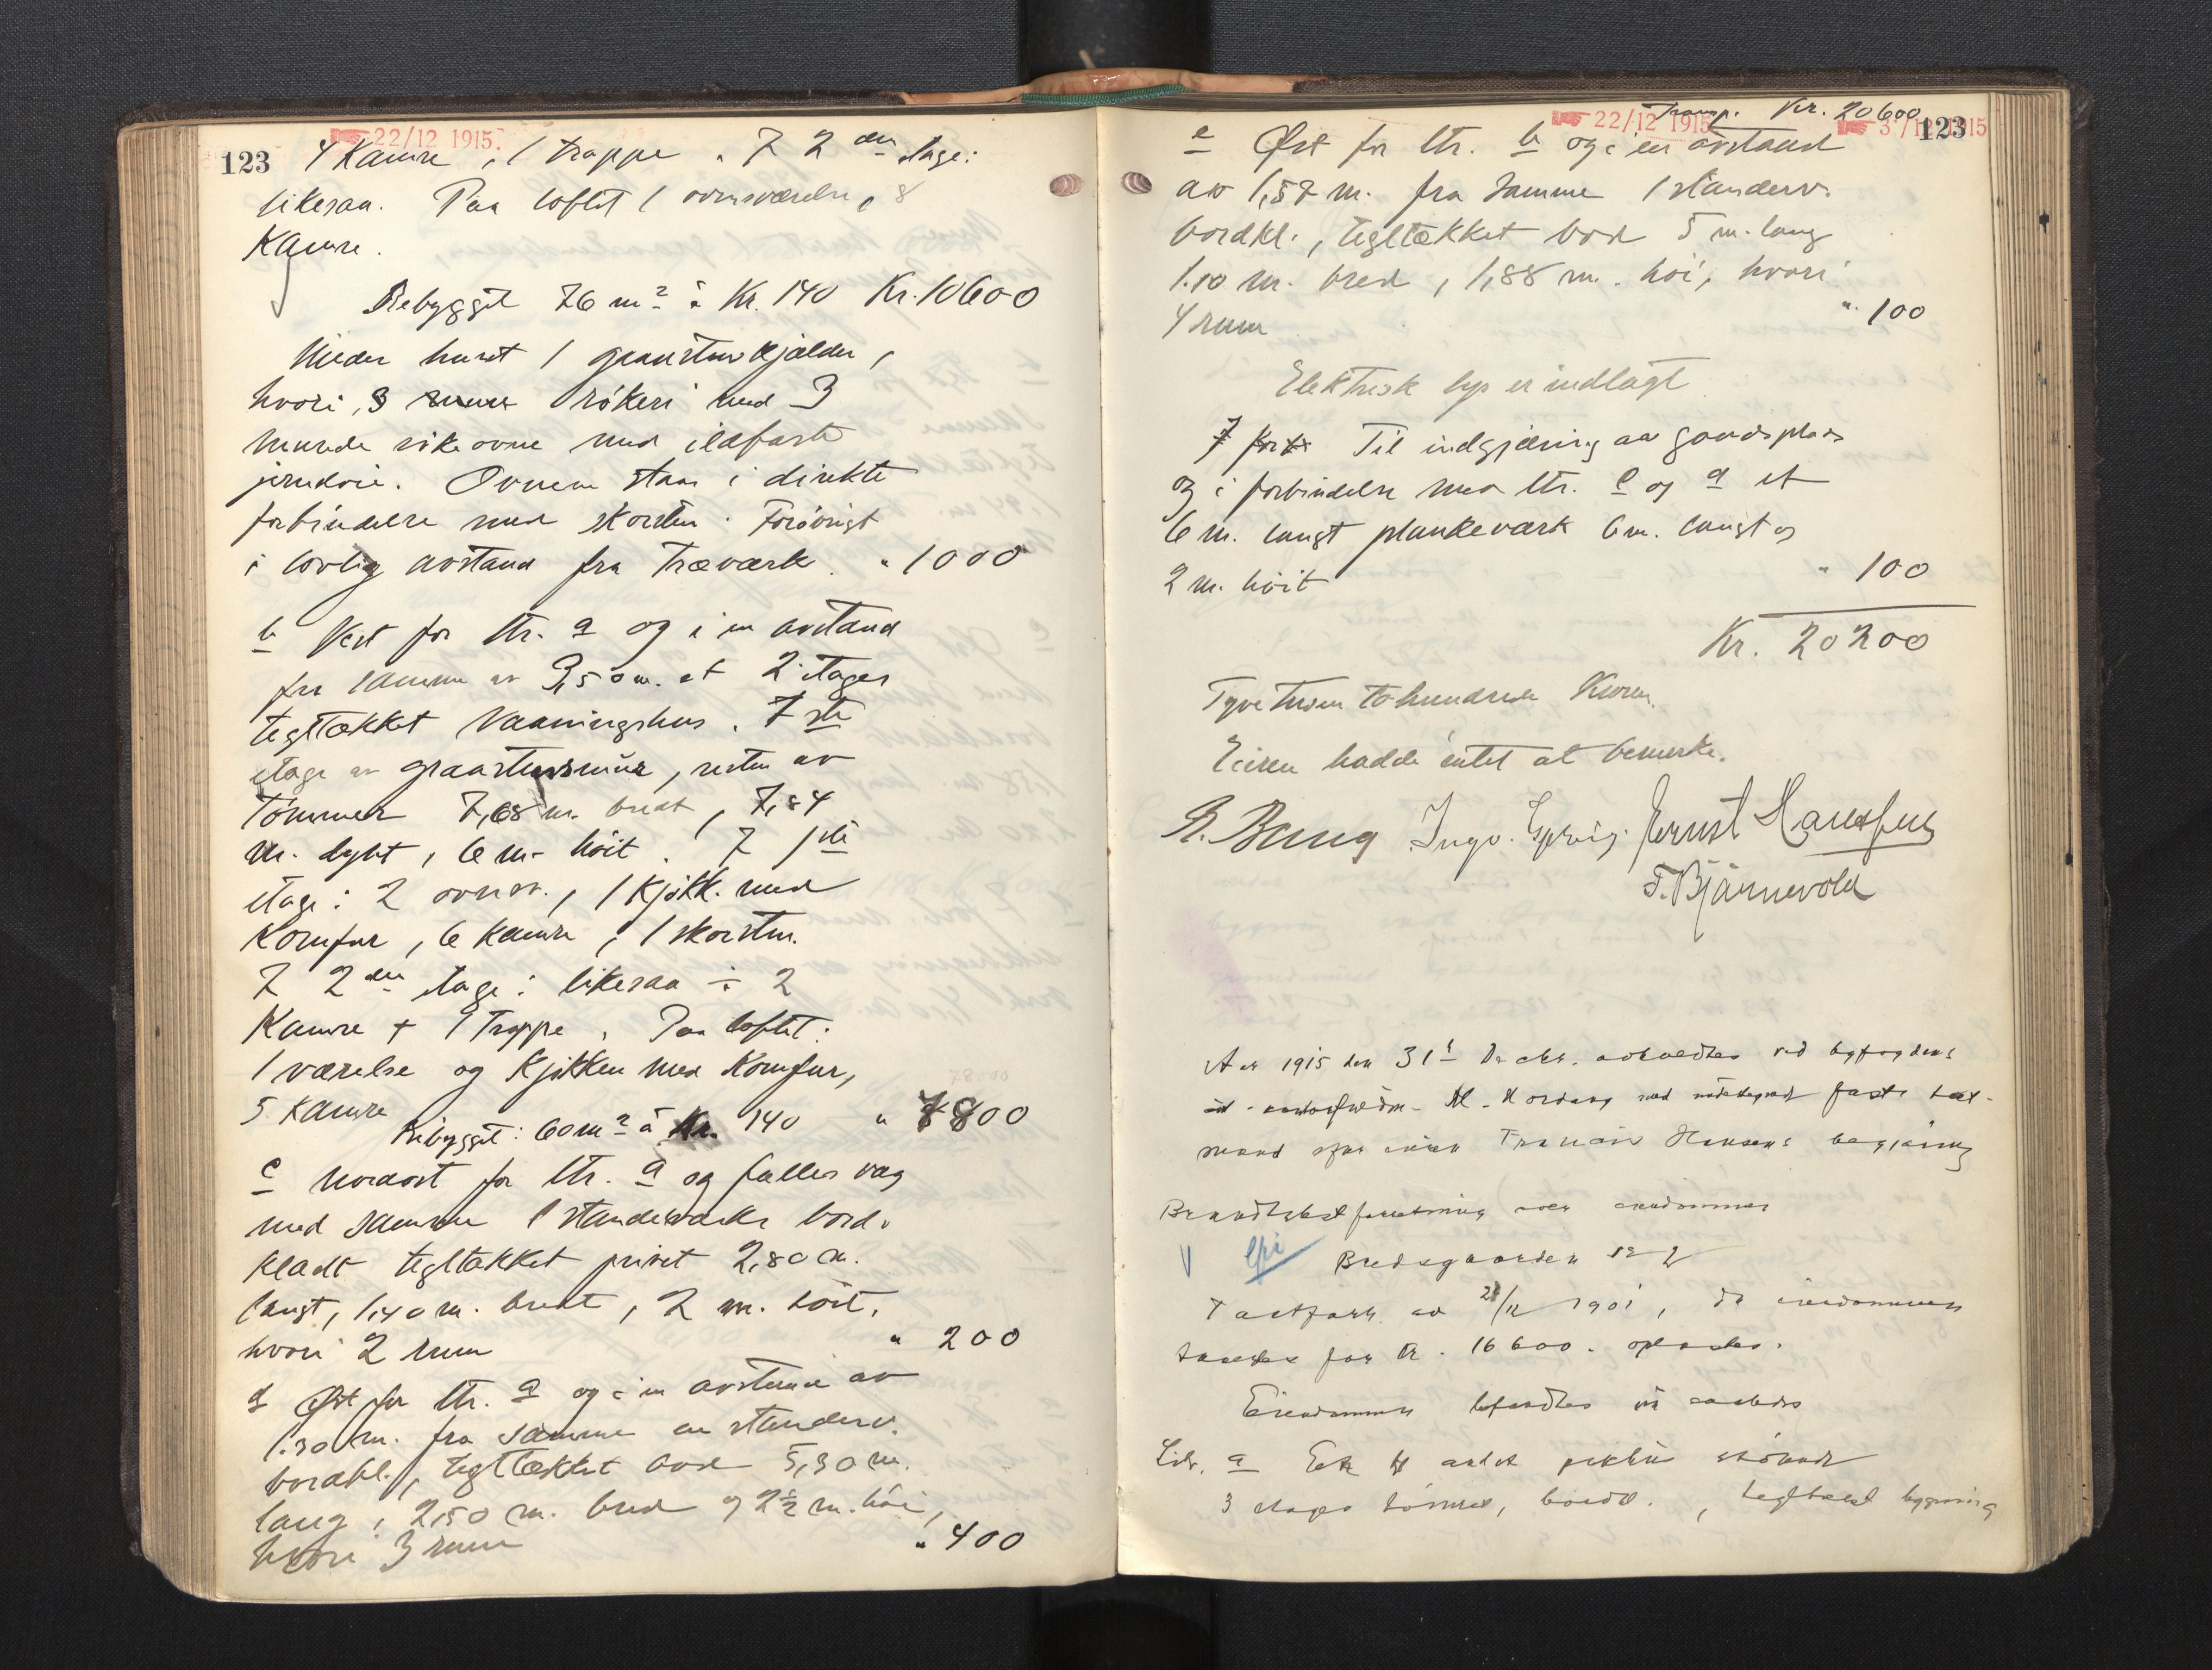 22/12 1915.
123 4 Kamre, 1 trappe. I 2den etage:
likesaa. Paa loftet 1 ovnsværelse, 8
Kamre.
Bebygget 76 m² à Kr. 140 Kr. 10600
Under huset 1 graastenskjælder,
hvori, 3 rum 1 røkeri med 3
murede røkeovne med ildfaste
jerndøre. Ovnene staar i direkte
forbindelse med skorsten. Forøvrigt
i lovlig avstand fra træværk. " 1000
b Vest for ltr. a og i en avstand
fra samme av 3,50 m. et 2 etages
tegltækket Vaaningshus. 1ste
etage av graastensmur, resten av
Tømmer 7,68 m. bredt, 7,84
m. dybt, 6 m. høit. I 1ste
etage: 2 ovnsv., 1 Kjøkk. med
Komfur, 6 Kamre, 1 skorsten.
I 2den etage: likesaa ÷ 2
Kamre + 1 Trappe. Paa loftet:
1 værelse og Kjøkken med Komfur,
5 Kamre
Bebygget: 60 m² à Kr. 140 " 7800
c Nordost for ltr. a og fælles væg
med samme 1 standerværks bord-
klædt tegltækket privet 2,80 m.
langt, 1,40 m. bredt, 2 m. høit,
hvori 2 rum " 200
d Øst for ltr. a og i en avstand av
1.30 m. fra samme en standerv.
bordkl., tegltækket bod 5,30 m.
lang, 2,50 m. bred og 2½ m. høi,
hvori 3 rum " 400
Kr. 20600
22/12 1915 31/12 1915 123
e Øst for ltr. b og i en avstand
av 1,57 m. fra samme 1 standerv.
bordkl., tegltækket bod 5 m. lang
1.10 m. bred, 1,88 m. høi, hvori
4 rum " 100
Elektrisk lys er indlagt
f Til indgjærding av gaardsplads
og i forbindelse med ltr. e og a et
6 m. langt plankeværk 6 m. langt og
2 m. høit " 100
Kr. 20200
Tyve tusen tohundrede Kroner.
Eieren hadde intet at bemerke.
Ernst Hansen
F. Bjarnevold
Aar 1915 den 31te Decbr. avholdtes ved byfogdens
faste tax-
mand efter Hansens begjæring
Brandtakstforretning over eiendommen
Bredsgaarden 12
Taxtforr. av 21/12 1901, da eiendommen
taxertes for Kr. 16600. oplæstes.
Eiendommen befandtes at bestaa
Litr. a
3 etages tømret, bordkl., tegltækt bygning